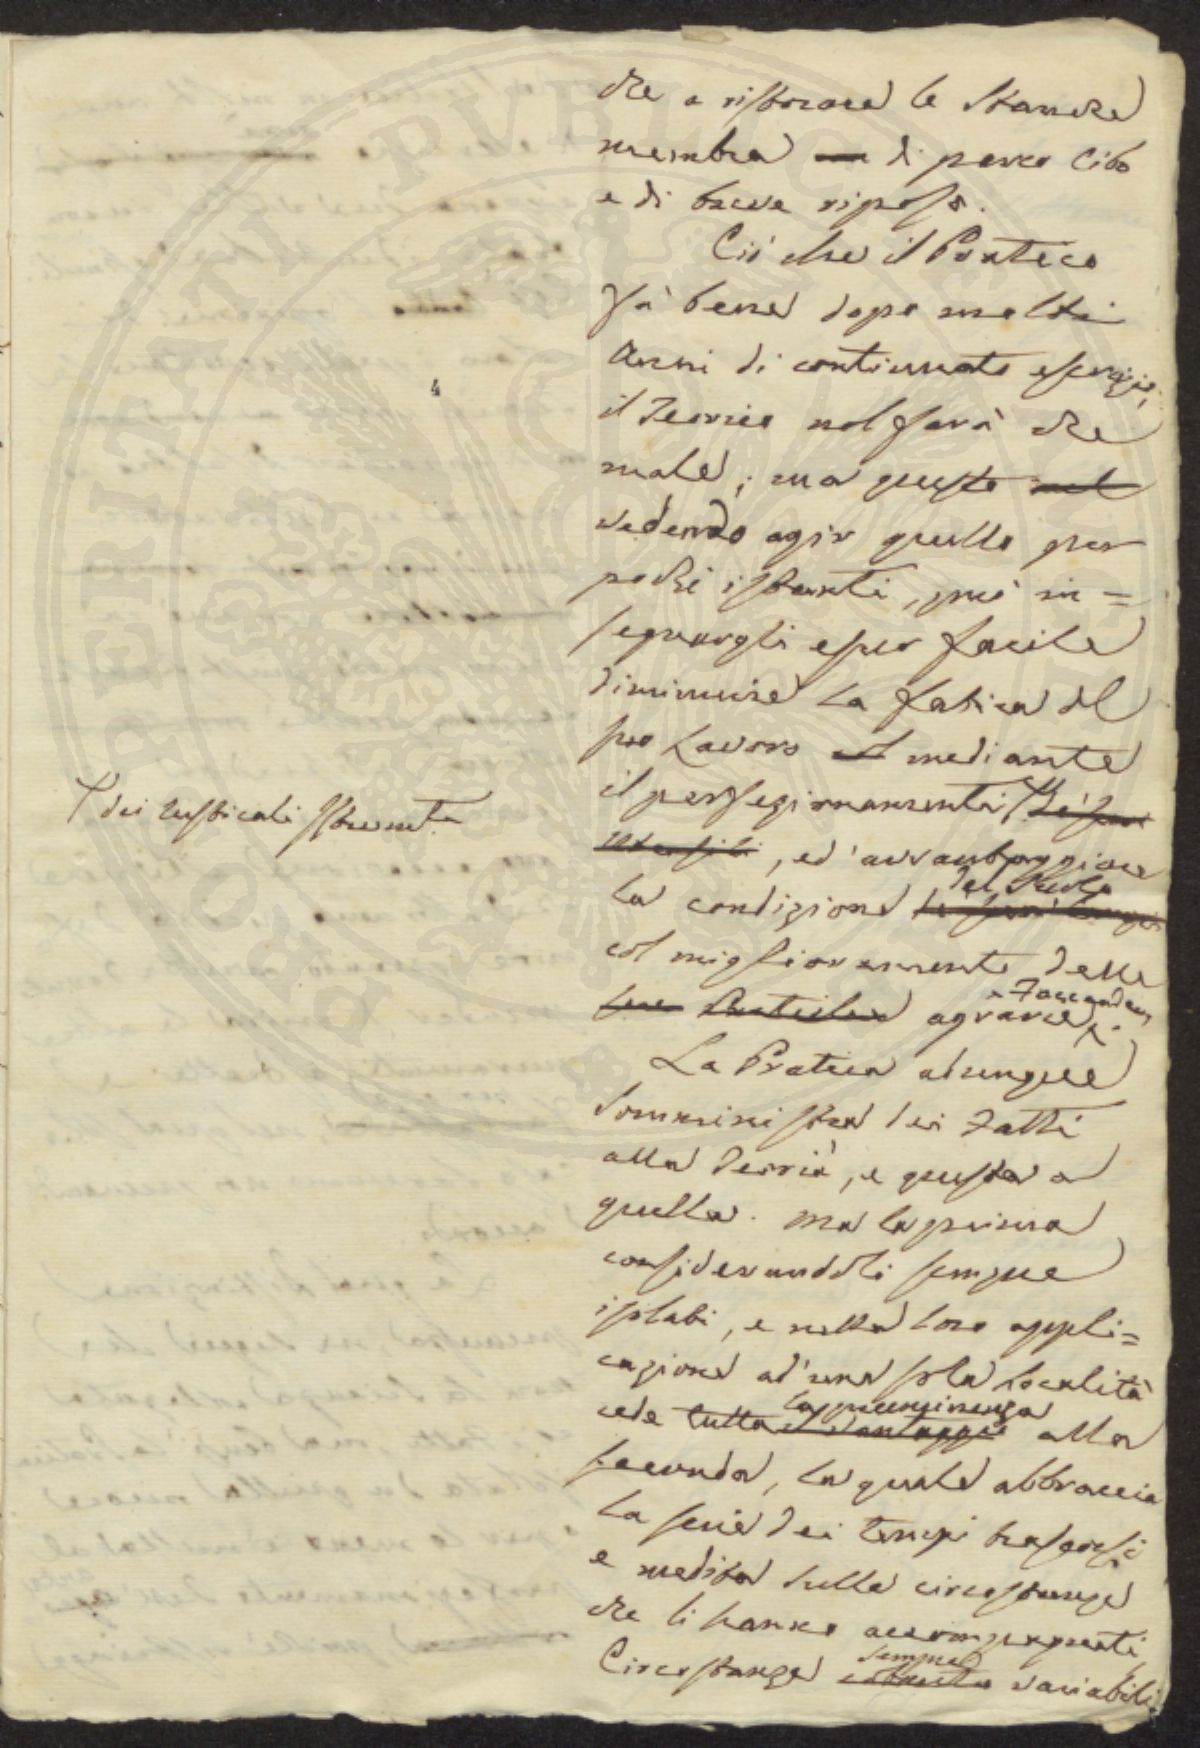 che a ristorare le stanche
membra di parco cibo
e di breve riposo.
Ciò che il Pratico
fà bene dopo molti
anni di continuato esercizio,
il Teorico nol farà che
male; ma questo nel
vedendo agir quello per
pochi istanti, può in=
segnargli esser facile
diminuire la fatica del
suo lavoro mediante
il perfezionamento
utensili, ed avvantaggiare
† dei rusticali strumenti
la condizione del suolo
col miglioramento delle
sue Pratiche agrarie e Faccende
La Pratica adunque
somministra dei Fatti
alla Teoria, e questa a
quella. Ma la prima
considerandoli sempre
isolati, e nella loro appli=
cazione ad una sola località
cede tutta il vantaggio la preminenza alla
seconda, la quale abbraccia
la serie dei tempi trascorsi
e medita sulle circostanze
che li hanno accompagnati
Circostanze sempre variabili
4
PERITATI PVBLICAE